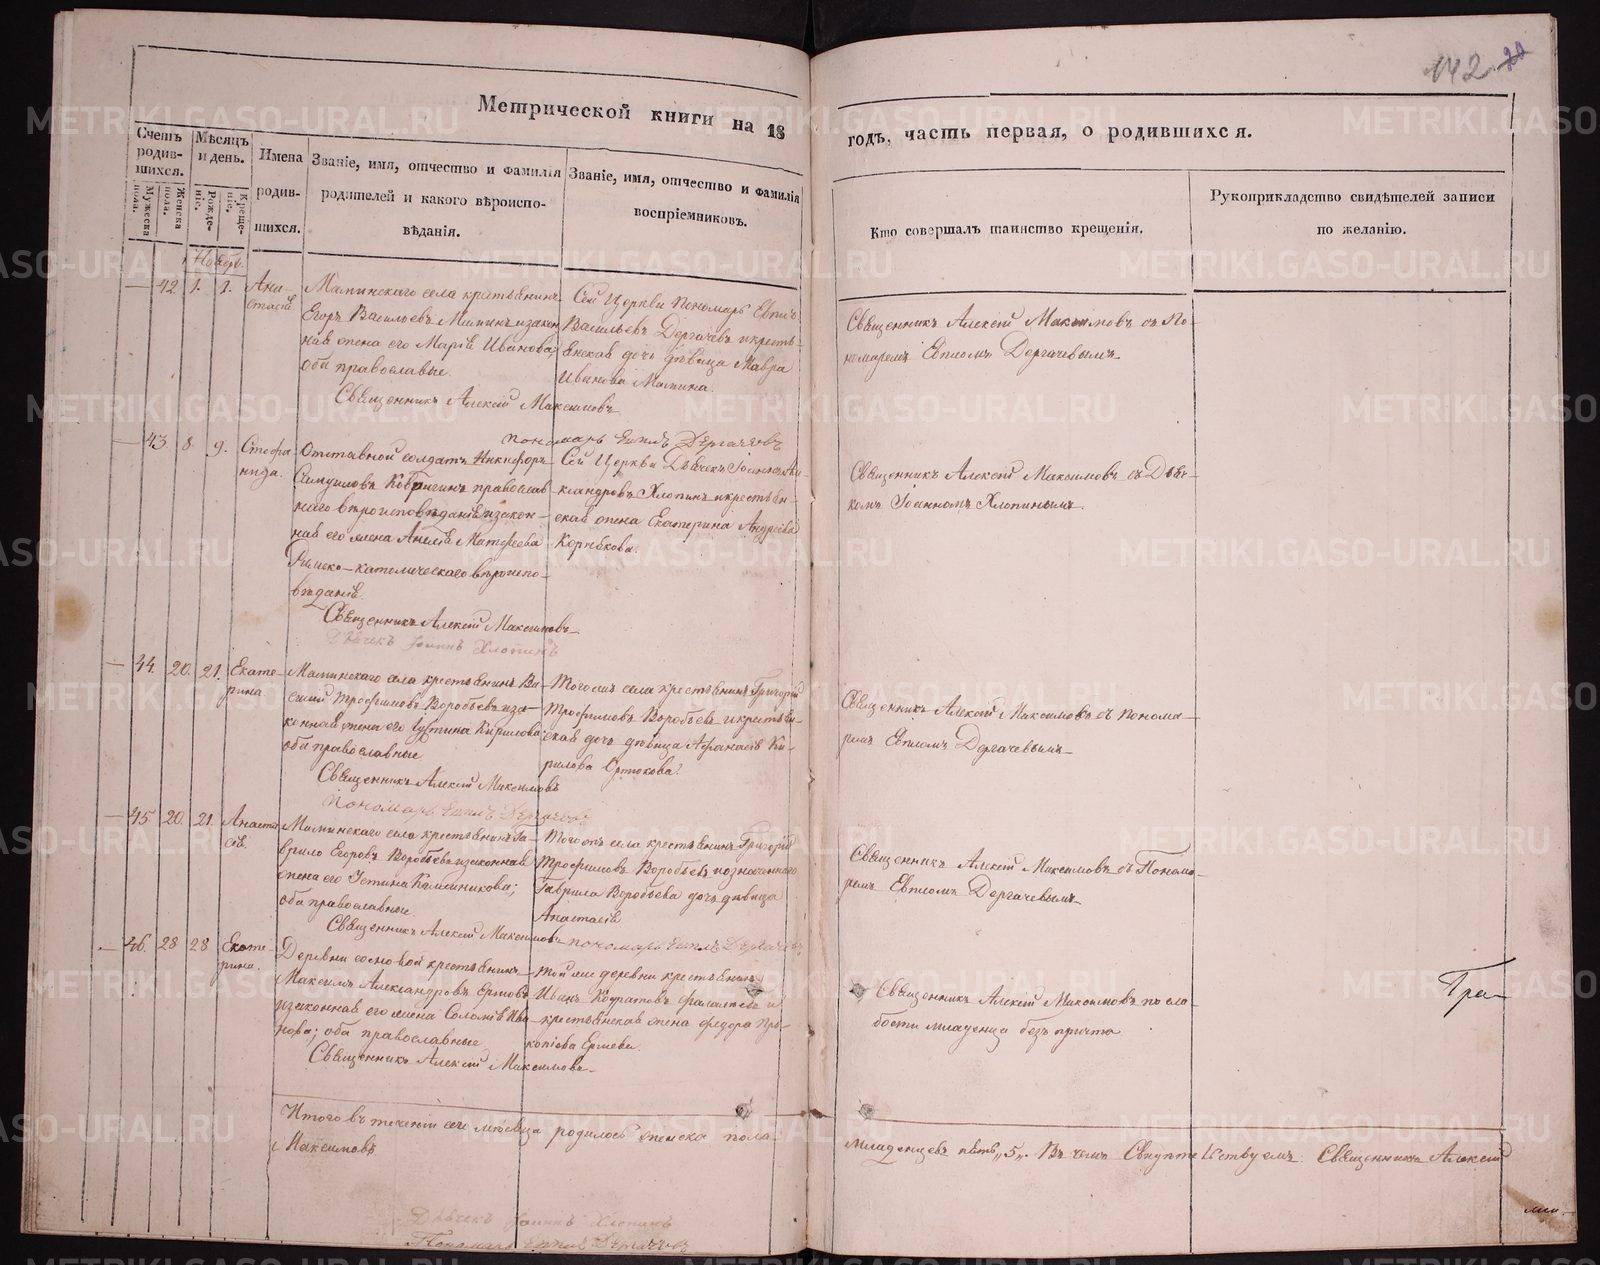 142
Метрической книги на 18
годъ, часть первая, о родившихся.
Счетъ родившихся.
Мужеска пола.
Женска пола.
Мѣсяцъ и день.
Рожденіе.
Крещеніе.
Имена
родив-
шихся.
Званіе, имя, отчество и фамилія
родителей и какого вѣроиспо-
вѣданія.
Званіе, имя, отчество и фамилія
воспріемниковъ.
Кто совершалъ таинство крещенія.
Рукоприкладство свидѣтелей записи
по желанію.
Ноябрь.
42 1. 1.
Ана-
стасія
Маминскаго села крестьянинъ
Егоръ Васильевъ Маминъ и закон
ная жена его Марія Иванова;
оба православные.
Священникъ Алексій Максимовъ
Сей Церкви Пономарь Евплъ
Васильевъ Дергачевъ и кресть-
янская дочь дѣвица Мавра
Иванова Мамина.
Пономарь Евплъ Дергачевъ
Священникъ Алексій Максимовъ съ По-
номаремъ Евпломъ Дергачевымъ
43 8. 9.
Стефа
нида.
Отставной солдатъ Никифоръ
Самуиловъ православ
наго вѣроисповѣданія и закон-
ная его жена Матфеева
Римско-католическаго вѣроиспо-
вѣданія.
Священникъ Алексій Максимовъ
Дьячекъ Іоаннъ Хлопинъ
Сей Церкви Дьячекъ Іоаннъ Але-
ксандровъ Хлопинъ и крестьян-
ская жена Екатерина Андреева
Корнякова.
Священникъ Алексій Максимовъ съ Дьяч-
комъ Іоанномъ Хлопинымъ
44. 20. 21.
Екате-
рина
Маминскаго села крестьянинъ Ва-
силій Трофимовъ Воробьевъ и за-
конная жена его Кирилова
оба православные
Священникъ Алексій Максимовъ
Пономарь Евплъ Дергачевъ
Тогоже села крестьянинъ Григорій
Трофимовъ Воробьевъ и крестьян-
ская дочь дѣвица Афанасія Ки-
рилова
Священникъ Алексій Максимовъ съ Понома-
ремъ Евпломъ Дергачевымъ
45. 20. 21.
Анаста
сія.
Маминскаго села крестьянинъ Га-
врило Егоровъ Воробьевъ и законная
жена его Устина;
оба православные
Священникъ Алексій Максимовъ
Тогоже села крестьянинъ Григорій
Трофимовъ Воробьевъ
Гаврила Воробьева дочь дѣвица
Анастасія
Пономарь Евплъ Дергачевъ
Священникъ Алексій Максимовъ съ Понома-
ремъ Евпломъ Дергачевымъ
46. 28 28
Екате-
рина.
Деревни Сосновой крестьянинъ
Максимъ Александровъ
и законная его жена Соломія Ива
нова; оба православные
Священникъ Алексій Максимовъ
Той же деревни крестьянинъ
Иванъ и
крестьянская жена Федора Про-
копіева
Священникъ Алексій Максимовъ по сла-
бости младенца безъ причта
Гра-
Итого въ теченіи сего мѣсяца родилось женска пола
младенцевъ пять „5„. Въ чемъ Свидѣтельствуемъ: Священникъ Алексій
Максимовъ
Дьячекъ Іоаннъ Хлопинъ
Пономарь Евплъ Дергачевъ
METRIKI.GASO-URAL.RU